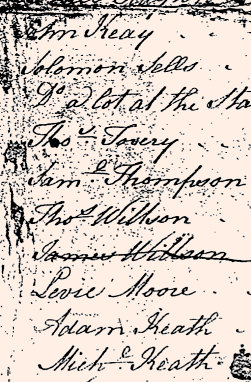 John Keay
Solomon Sells
Do a lot at the Sta
Thos Tovery
Saml Thompson
Thos Willson
James Willson
Levie Moore
Adam Keath
Michl Keath